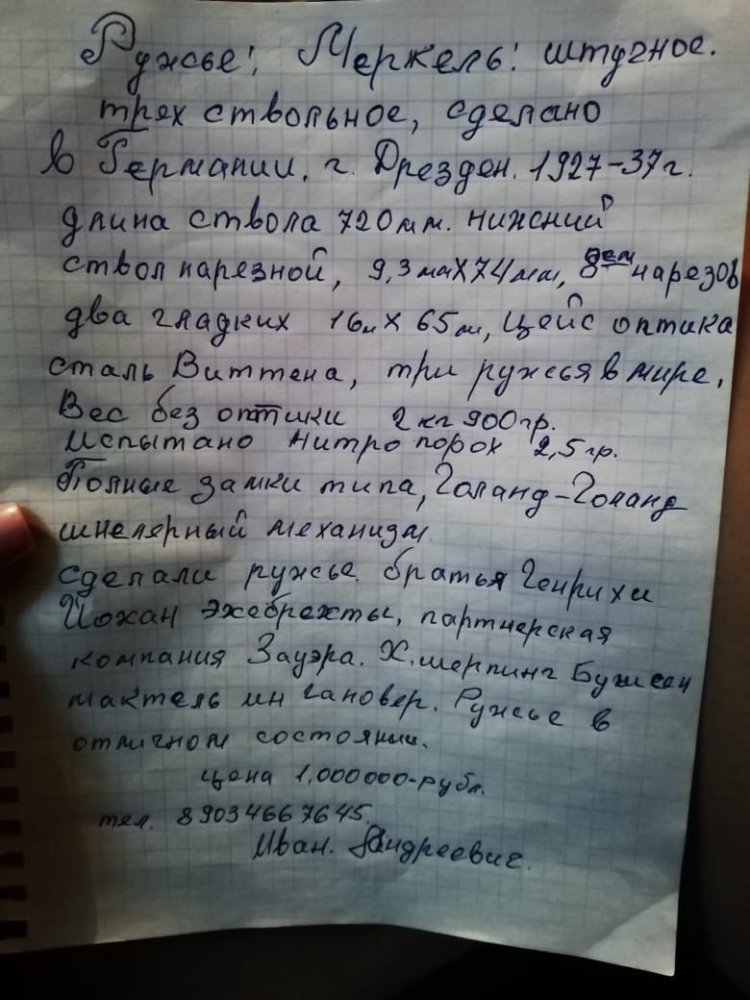 Ружье! Меркель! штучное.
трех ствольное, сделано
в Германии. г. Дрезден. 1927-37г.
длина ствола 720мм. нижний
ствол нарезной, 9,3ммх74мм, 8 нарезов
два гладких 16мх65м, Цейс оптика
сталь Виттена, три ружья в мире.
Вес без оптики 2кг900гр.
испытано нитро порох 2,5гр.
Полные замки типа, Голанд-Голанд
шнелярный механизм
сделали ружье братья Генрих и
Йохан Эжебрехты, партнерская
компания Зауэра. Х.шерпинг Бужсен
мактель ин гановер. Ружье в
отличном состоянии.
цена 1.000000-рубл.
тел. 89034667645.
Иван. Андреевич.